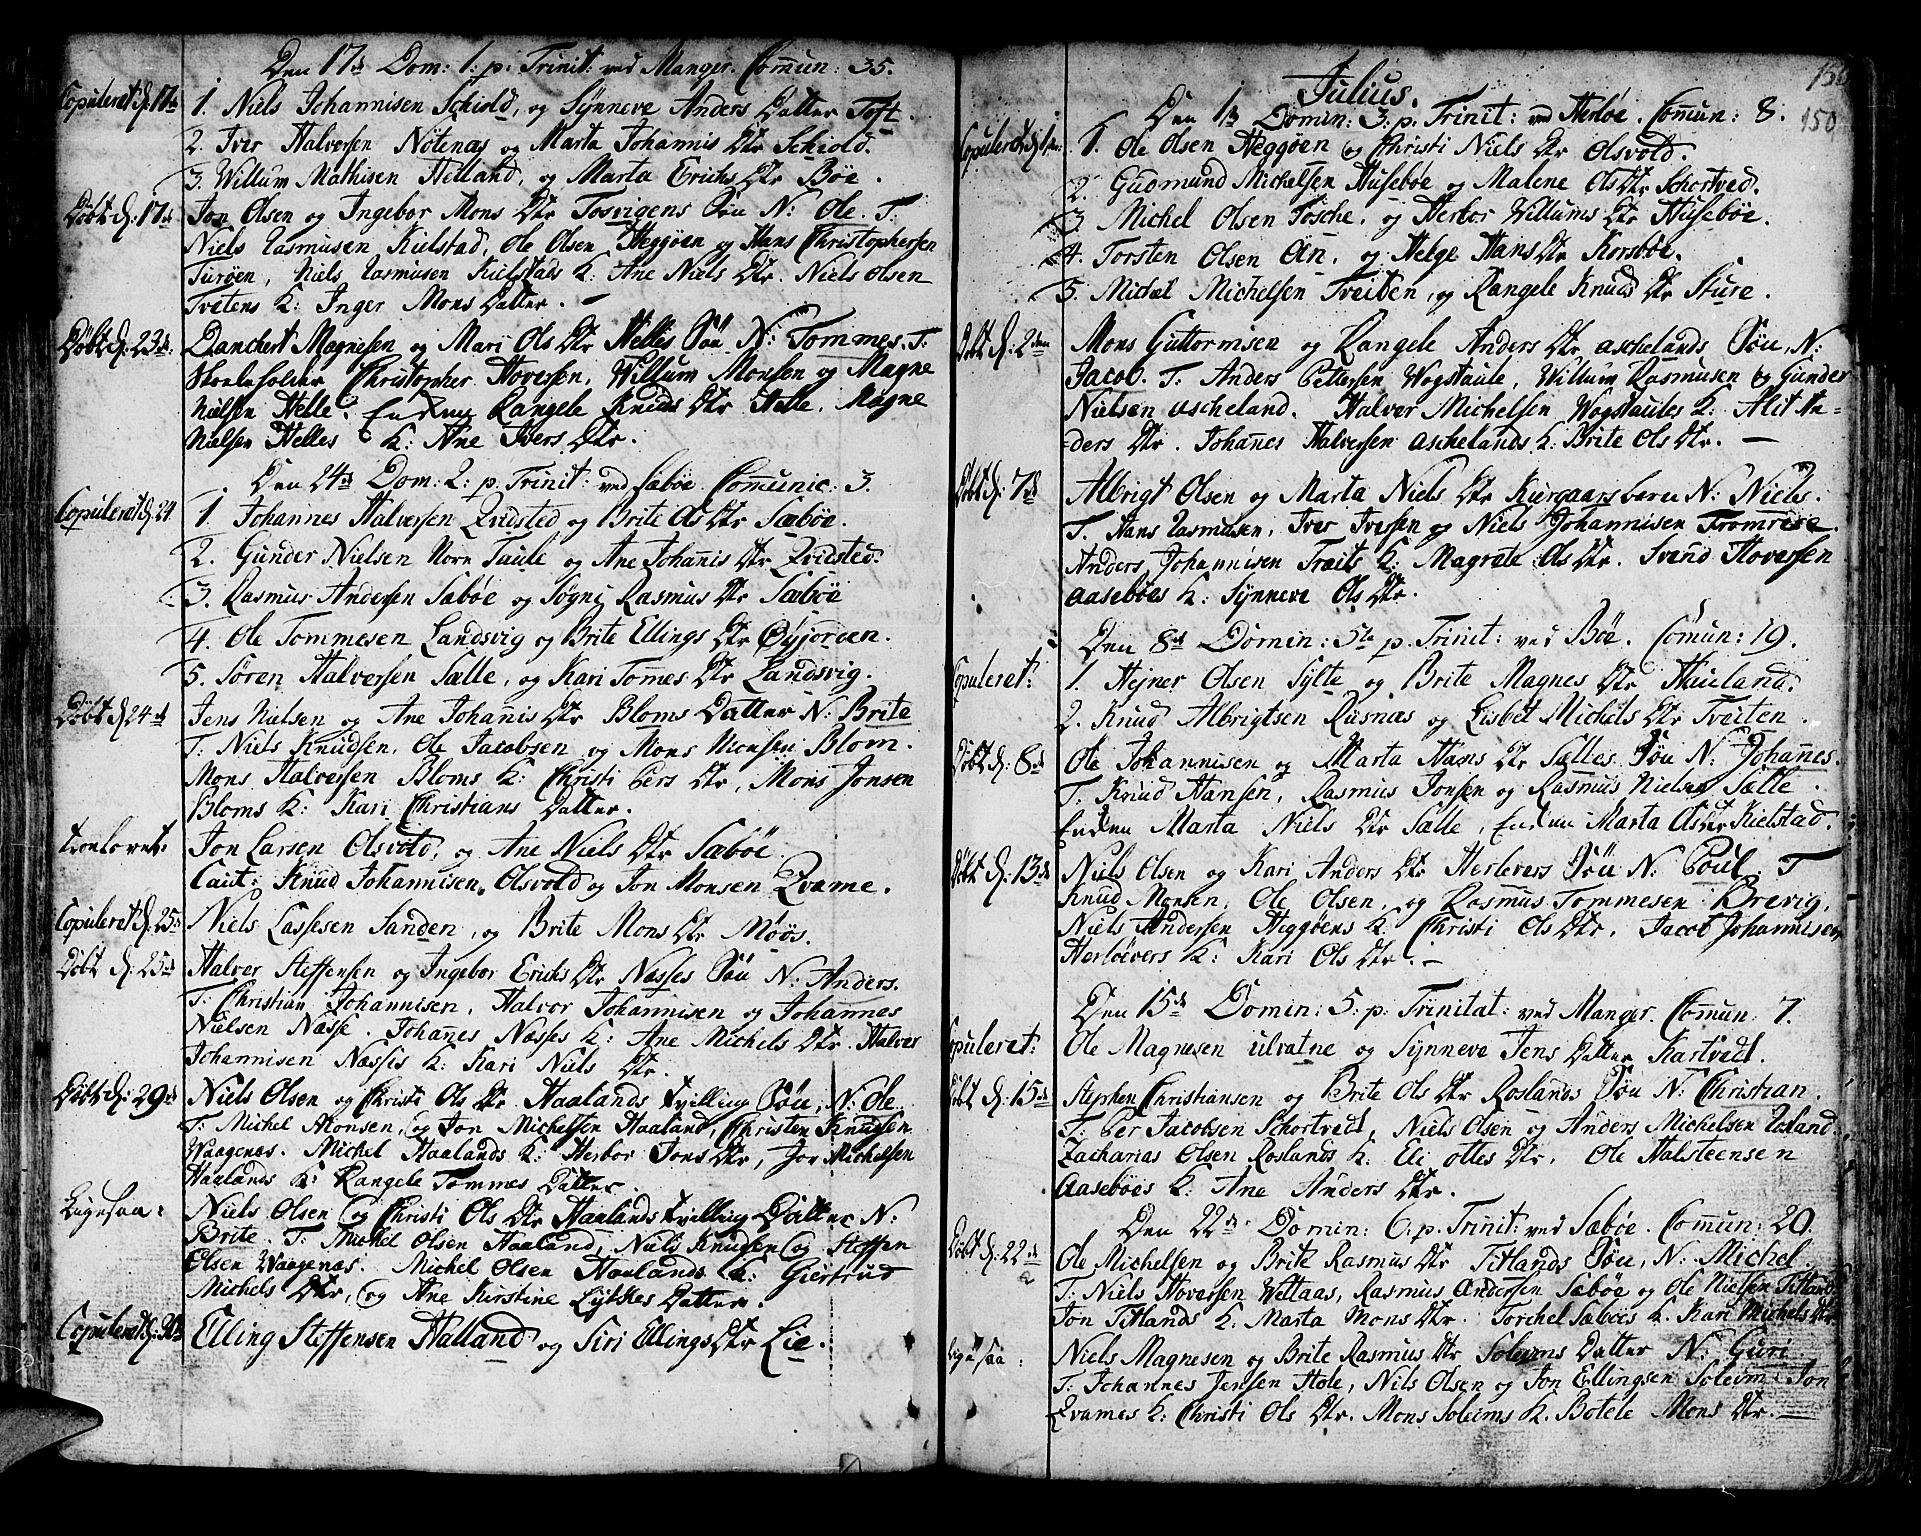 Den 17de Dom: 1. p: Trinit: ved Manger. Comun: 35.
Copuleret d: 17de 1. Niels Johannisen Schiold, og Synneve Anders Datter Toft.
2. Iver Halversen Nótenæs og Marta Johannis Dtr Schiold.
3. Willum Mathisen Helland, og Marta Erichs Dtr Bóe.
Döbt d: 17de Jon Olsen og Ingebor Mons Dtr Tosvigens Sön N: Ole. T:
Niels Rasmusen Kielstad, Ole Olsen Heggöen og Hans Christophersen
Turöen, Niels Rasmusen Kielstads K: Ane Niels Dtr. Niels Olsen
Tvetens K: Inger Mons Datter. —
Döbt d: 23de Danchert Magnesen og Mari Ols Dtr Helles Sön N: Tommes. T:
Skoeleholder Christopher Hoversen, Willum Monsen og Magne
Nielsen Helle. Enden Rangele Knuds Dtr Helle, Magne
Nielsen Helles K: Ane Ivers Dtr.
Den 24de Dom: 2. p. Trinit: ved Sæbóe. Comunic: 3.
Copuleret d. 24 1. Johannes Halversen Qvidsted og Brite Ols Dtr Sæbóe.
2. Gunder Nielsen Norn Taule og Ane Johanis Dtr Qvidsted.
3. Rasmus Andersen Sæbóe og Sógni Rasmus Dtr Sæbóe
4. Ole Tommesen Landsvig og Brite Ellings Dtr Öyjorden.
5. Sören Halversen Sælle, og Kari Tomes Dtr Landsvig.
Döbt d. 24de Jens Nielsen og Ane Johanis Dtr Bloms Datter N: Brite
T: Niels Knudsen, Ole Jacobsen og Mons Monsen Blom.
Mons Halversen Bloms K: Christi Pers Dtr, Mons Jonsen
Bloms K: Kari Christians Datter.
Troelovet: Jon Larsen Olsvold, og Ane Niels Dtr Sæbóe.
Caut: Knud Johannisen Olsvold og Jon Monsen Qvame.
Copuleret d: 25de Niels Lassesen Sanden, og Brite Mons Dtr Móós.
Döbt d: 25de Halver Steffensen og Ingebor Erichs Dtr Næsses Sön N: Anders.
T: Christian Johannisen, Halvor Johannisen og Johannes
Nielsen Næsse. Johanes Næsses K: Ane Michels Dtr. Halver
Johannisen Næssis K: Kari Niels Dtr.
Döbt d: 29de Niels Olsen og Christi Ols Dtr Haalands Tvilling Sön, N: Ole
T: Michel Monsen, og Jon Michelsen Haaland, Christen Knudsen
Waagenæs. Michel Haalands K: Herbor Jons Dtr, Jon Michelsen
Haalands K: Rangele Tommes Datter.
Ligesaa: Niels Olsen og Christi Ols Dtr Haalands Tvilling Datter N:
Brite. T: Michel Olsen Haaland, Niels Knudsen og Steffen
Olsen Waagenæs. Michel Olsen Haalands K: Giertrud
Michels Dtr, og Ane Kirstine Lytkes Datter.
Copuleret d: 30de Elling Steffensen Halland og Siri Ellings Dtr Lie.
150
Julius.
Den 1de Domin: 3. p. Trinit: ved Herlóe. Comun: 8.
Copuleret d. 1. Ole Olsen Heggöen og Christi Niels Dtr Olsvold.
2. Gudmund Michelsen Husebóe og Malene Ols Dtr Schortved.
3. Michel Olsen Tosche, og Herbor Willums Dtr Husebóe.
4. Torsten Olsen Oen, og Helge Hans Dtr Korsbóe.
5. Michel Michelsen Tveiten, og Rangele Knuds Dtr Sture.
Döbt d: 2den Mons Guttormsen og Rangele Anders Dtr Aschelands Sön, N:
Jacob. T: Anders Pettersen Wogstaule, Willum Rasmusen og Gunder
Nielsen Ascheland. Halver Michelsen Wogstaules K: Alit An-
-ders Dtr. Johanes Halversen Aschelands K: Brite Ols Dtr. —
Döbt d: 7de Albrigt Olsen og Marta Niels Dtr Kiergaars barn N: Niels.
T: Hans Rasmusen, Iver Iversen og Niels Johannisen Tromreve.
Anders Johannisen Træits K: Magrete Ols Dtr. Svend Hoversen
Aasebóes K: Synneve Ols Dtr.
Den 8de Domin: 5te p. Trinit: ved Bóe. Comun: 19.
Copuleret: 1. Hejner Olsen Sylte og Brite Magnes Dtr Hiuland.
2. Knud Albrigtsen Rusnæs og Lisbet Michels Dtr Tveiten.
Döbt d: 8de Ole Johannisen og Marta Hans Dtr Sælles Sön N: Johannes.
T: Knud Hansen, Rasmus Jonsen og Rasmus Nielsen Sælle.
Enden Marta Niels Dtr Sælle, Enden Marta Ols Dtr Kielstad.
Döbt d: 13de Niels Olsen og Kari Anders Dtr Herlevers Sön N: Poul. T
Knud Monsen, Ole Olsen, og Rasmus Tommesen Brevig,
Niels Andersen Heggöens K: Christi Ols Dtr, Jacob Johannisen
Herlöevers K: Kari Ols Dtr. —
Den 15de Domin: 5: p: Trinitat: ved Manger. Comun: 7.
Copuleret: Ole Magnesen Ulvatne og Synneve Jens Datter Kartvedt.
Döbt d: 15de Stephen Christiansen og Brite Ols Dtr Roslands Sön N: Christian.
T: Per Jacobsen Schortvedt, Niels Olsen og Anders Michelsen Roland.
Zacharias Olsen Roslands K: Eli Ottes Dtr, Ole Halsteensen
Aasebóes K: Ane Anders Dtr.
Den 22de Domin: 6. p. Trinit: ved Sæbóe. Comun: 20
Döbt d: 22de Ole Michelsen og Brite Rasmus Dtr Titlands Sön, N: Michel.
T: Niels Hoversen Wetaas, Rasmus Andersen Sæbóe og Ole Nielsen Titland
Jon Titlands K. Marta Mons Dtr. Torchel Sæbóes K. Kari Michels Dtr
Ligesaa: Niels Magnesen og Brite Rasmus Dtr Soleims Datter N: Guri.
T: Johannes Jensen Hole, Nils Olsen og Jon Ellingsen Soleim. Jon
Qvames K: Christi Ols Dtr. Mons Soleims K. Botele Mons Dtr. —